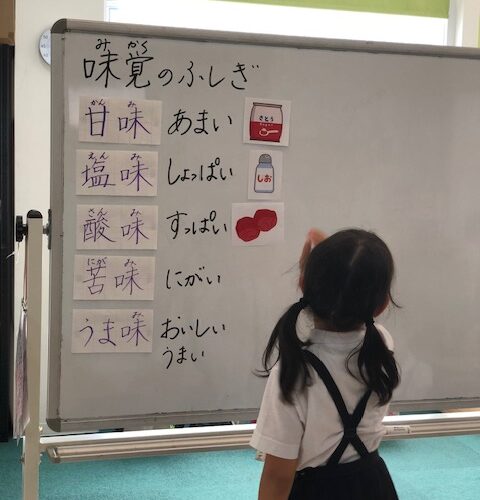 味覚のふしぎ
みかく
甘味 あまい
かんみ
さとう
塩味 しょっぱい
えんみ
しお
酸味 すっぱい
さんみ
苦味 にがい
にがみ
うま味 おいしい
み
うまい